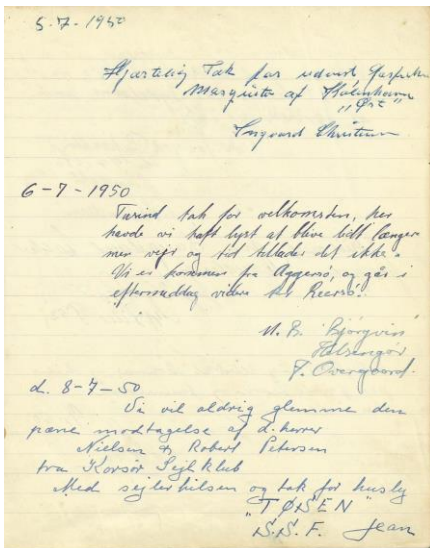 5-7-1950
Hjærtelig Tak for udvist Gæstfri
af København
"Øst"
Ingvard Christensen
6-7-1950
Tusind tak for velkomsten, her
havde vi haft lyst at blive lidt længer
men vejr og tid tillader det ikke.
Vi er kommen fra Aggersø, og går i
eftermiddag videre til Reersø.
M. B. "Bjørgvin"
Helsingør
Overgaard.
d. 8-7-50
Vi vil aldrig glemme den
pæne modtagelse af d. herrer
Nielsen & Robert Petersen
fra Korsør Sejlklub
Med sejlerhilsen og tak for husly
"TØSEN"
S.S.F. Jean